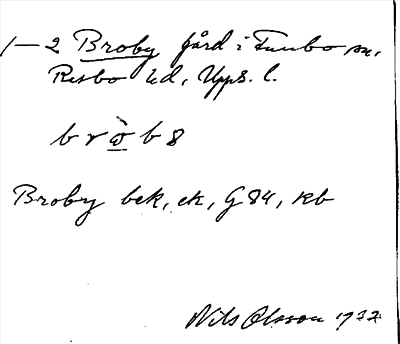 1–2 Broby gård i Funbo sn,
Rasbo hd, Upps. l.
bròb8
Broby bek, ek, G 84, Kb
Nils Olsson 1932